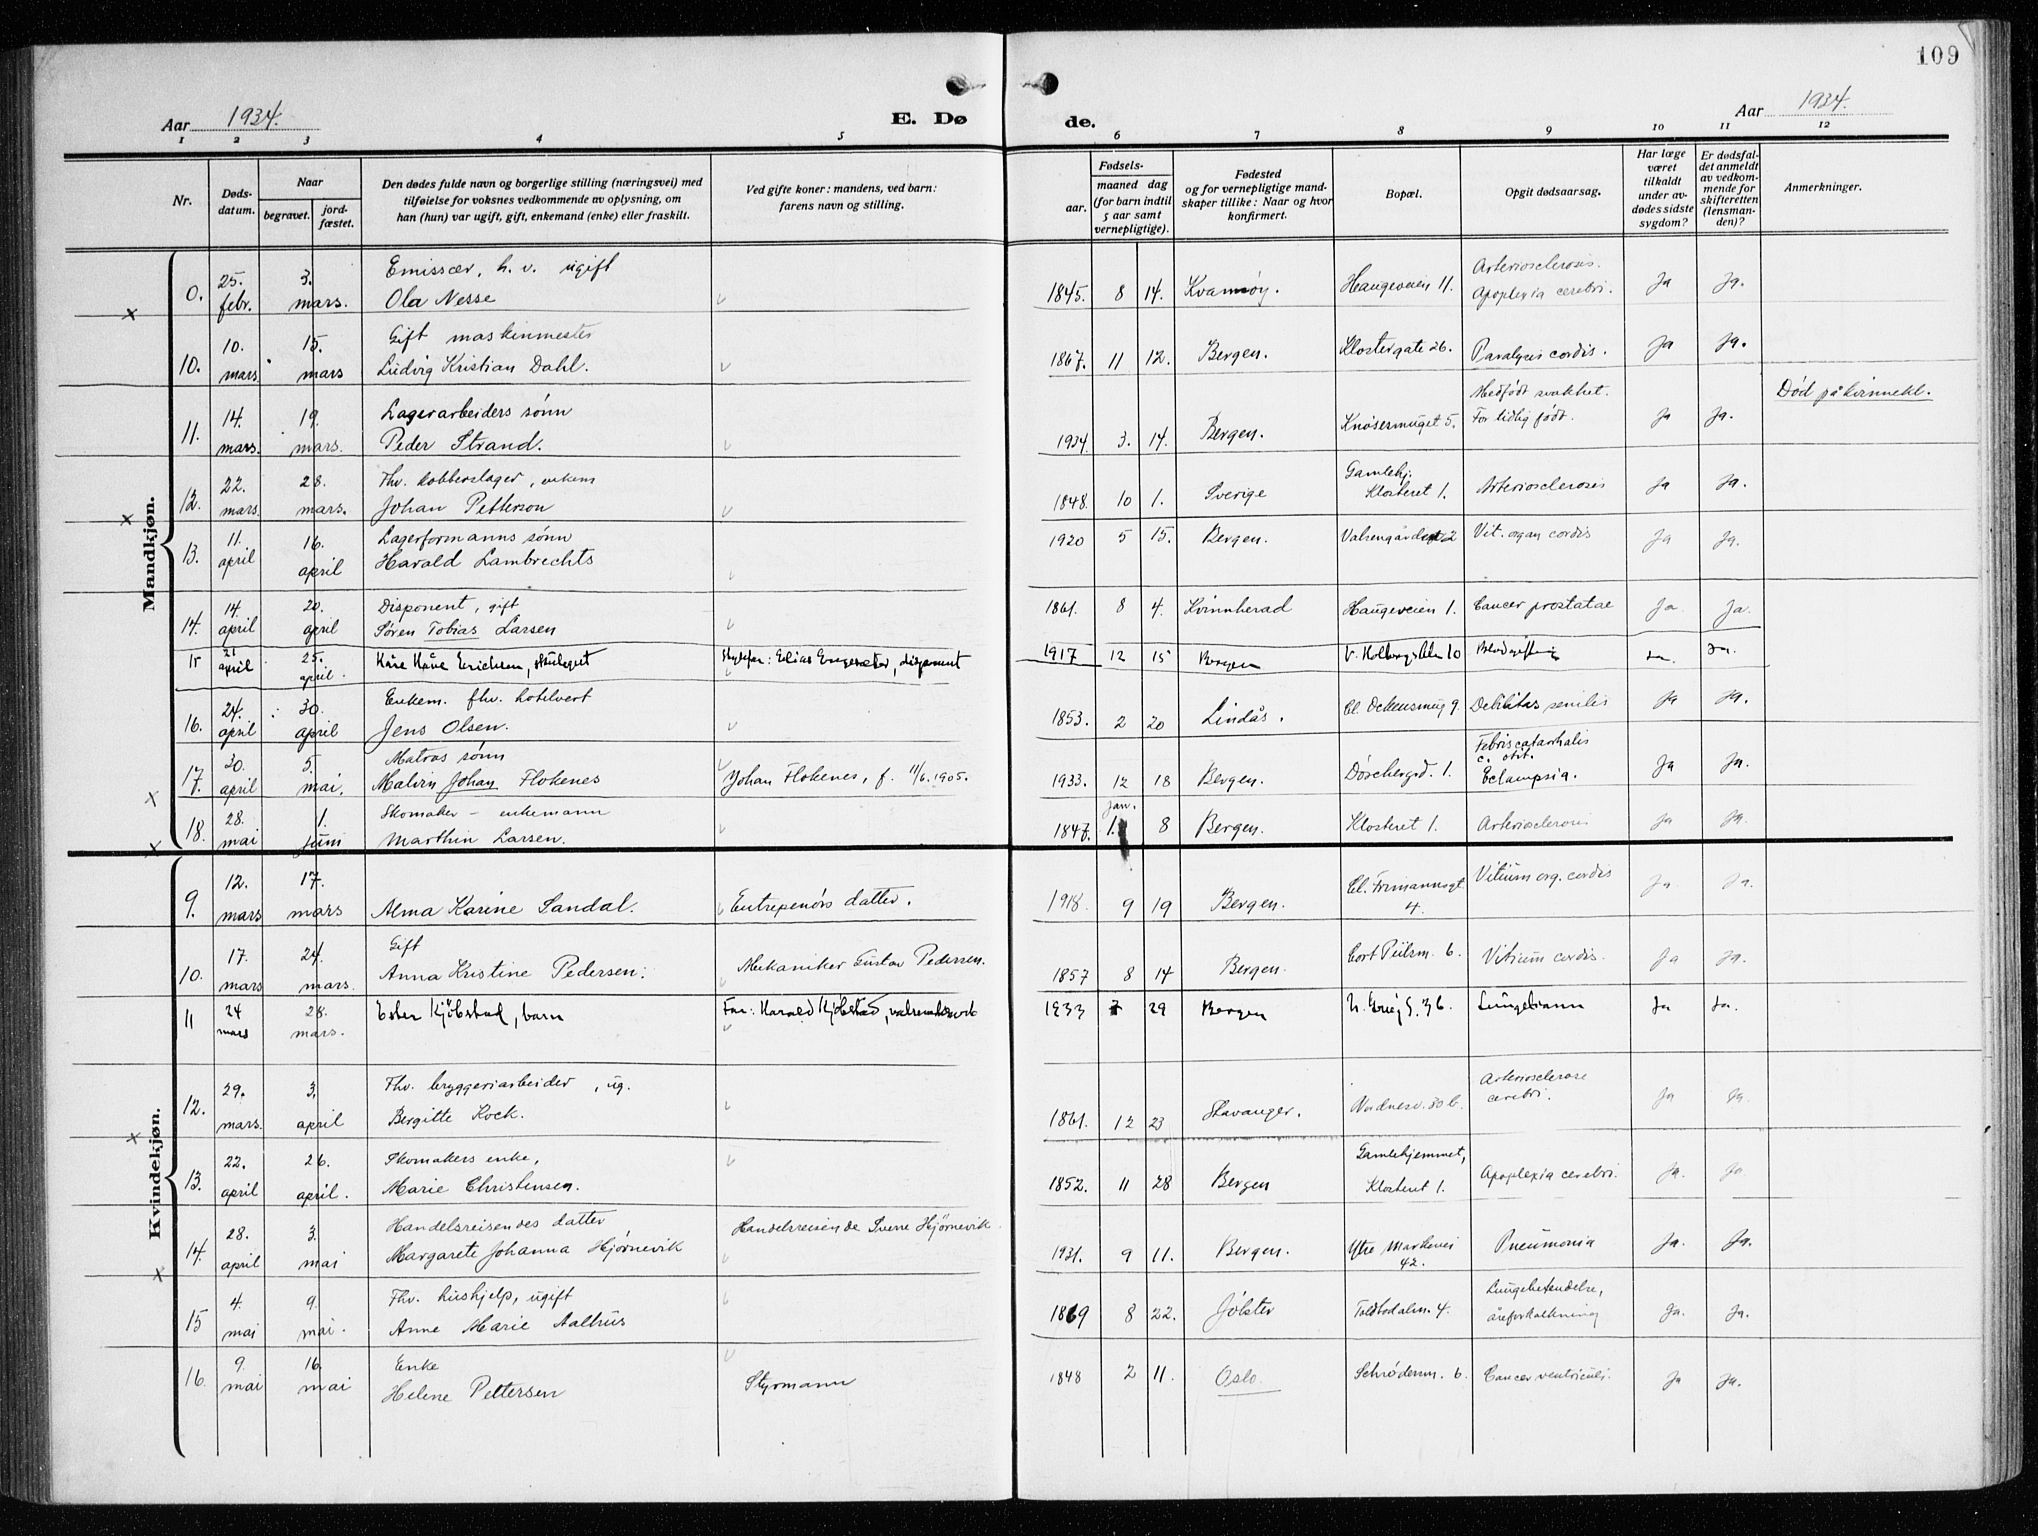 109
Aar 1934.
E. Dø de.
Aar 1934.
1 2 3 4 5 6 7 8 9 10 11 12
Nr.
Døds-
datum.
Naar
begravet.
jord-
fæstet.
Den dødes fulde navn og borgerlige stilling (næringsvei) med
tilføielse for voksnes vedkommende av oplysning, om
han (hun) var ugift, gift, enkemand (enke) eller fraskilt.
Ved gifte koner: mandens, ved barn:
farens navn og stilling.
Fødsels-
aar.
maaned dag
(for barn indtil
5 aar samt
vernepligtige).
Fødested
og for vernepligtige mand-
skaper tillike: Naar og hvor
konfirmert.
Bopæl.
Opgit dødsaarsag.
Har læge
været
tilkaldt
under av-
dødes sidste
sygdom?
Er dødsfal-
det anmeldt
av vedkom-
mende for
skifteretten
(lensman-
den)?
Anmerkninger.
Mandkjøn.
0. 25. febr. 3. mars. Emissær, h. v. ugift
Ola Nesse 1845. 8 14. Kvamsøy. Haugeveien 11. Arteriosclerosis.
Apoplexia cerebri. Ja Ja.
10. 10. mars. 15. mars Gift maskinmester
Ludvig Kristian Dahl. 1867. 11 12. Bergen. Klostergate 26. Paralysis cordis. Ja Ja.
11. 14. mars. 19. mars. Lagerarbeiders sønn
Peder Strand. 1934 3. 14. Bergen. Knøsesmuget 5. Medfødt svakhet.
For tidlig født. Ja Ja. Død på kvinnekl.
12. 22. mars. 28. mars. Fhv. kobberslager, enkem
Johan Petterson 1848. 10 1. Sverige Gamlehj.
Klosteret 1. Arteriosclerosis Ja Ja.
13. 11. april 16. april Lagerformanns sønn
Harald Lambrechts 1920 5 15. Bergen. Vit. organ cordis Ja Ja.
14. 14. april 20. april Disponent, gift
Søren Tobias Larsen 1861. 8 4. Kvinnherad Haugeveien 1. Cancer prostatae Ja. Ja.
15 21 april 25. april. Kåre Erichsen, skulegut disponent 1917 12 15 Bergen 10 Blodgiftning Ja. Ja.
16. 24. april 30. april Enkem. fhv. hotelvert
Jens Olsen. 1853. 2 20 Lindås. Debilitas senilis Ja Ja.
17. 30. april 5. mai. Matros sønn
Malvin Johan Flokenes Johan Flokenes, f. 11/6.1905. 1933. 12 18 Bergen. 1. Febris catarrhalis
c. otit.
Eclampsia. Ja Ja.
18. 28. mai 1. juni Skomaker - enkemann
Marthin Larsen. 1847. jan. 1. 8 Bergen. Klosteret 1. Arteriosclerosis Ja Ja.
Kvindekjøn.
9. 12. mars 17. mars Alma Karine Sandal. Entrepenørs datter. 1918. 9 19 Bergen. Cl. Frimannsgt.
4. Vitium org. cordis Ja. Ja.
10. 17. mars 24. mars. Gift
Anna Kristine Pedersen. Mekaniker Gustav Pedersen. 1857 8 14 Bergen. Cort Piilsm. 6. Vitium cordis. Ja Ja.
11 24 mars 28. mars. Ester Kjöbstad, barn Far: Harald Kjöbstad, 1933 7 29 Bergen 36. Lungebrann Ja Ja.
12. 29. mars. 3. april Fhv. bryggeriarbeider, ug.
Bergitte Kock. 1861. 12 23 Stavanger. Nordnesv. 30 b. Arteriosclerose
cerebri. Ja Ja.
13. 22. april 26. april. Skomakers enke,
Marie Christensen. 1852. 11 28 Bergen Gamlehjemmet,
Klosteret 1. Apoplexia cerebri. Ja. Ja.
14. 28. april 3. mai Handelsreisendes datter
Margarete Johanna Hjørnevik Handelsreisende Sverre Hjørnevik. 1931. 9 11. Bergen. Ytre Markevei
42. Pneumonia Ja. Ja.
15 4. mai 9. mai. Fhv. hushjelp, ugift
Anne Marie Aalhus 1869 8 22. Jølster Toldbodalm. 4. Lungebetendelse,
åreforkalkning Ja. Ja.
16. 9. mai 16. mai Enke
Helene Pettersen Styrmann 1848 2 11. Oslo. Schrøderm. 6. Cancer ventriculi. Ja Ja.